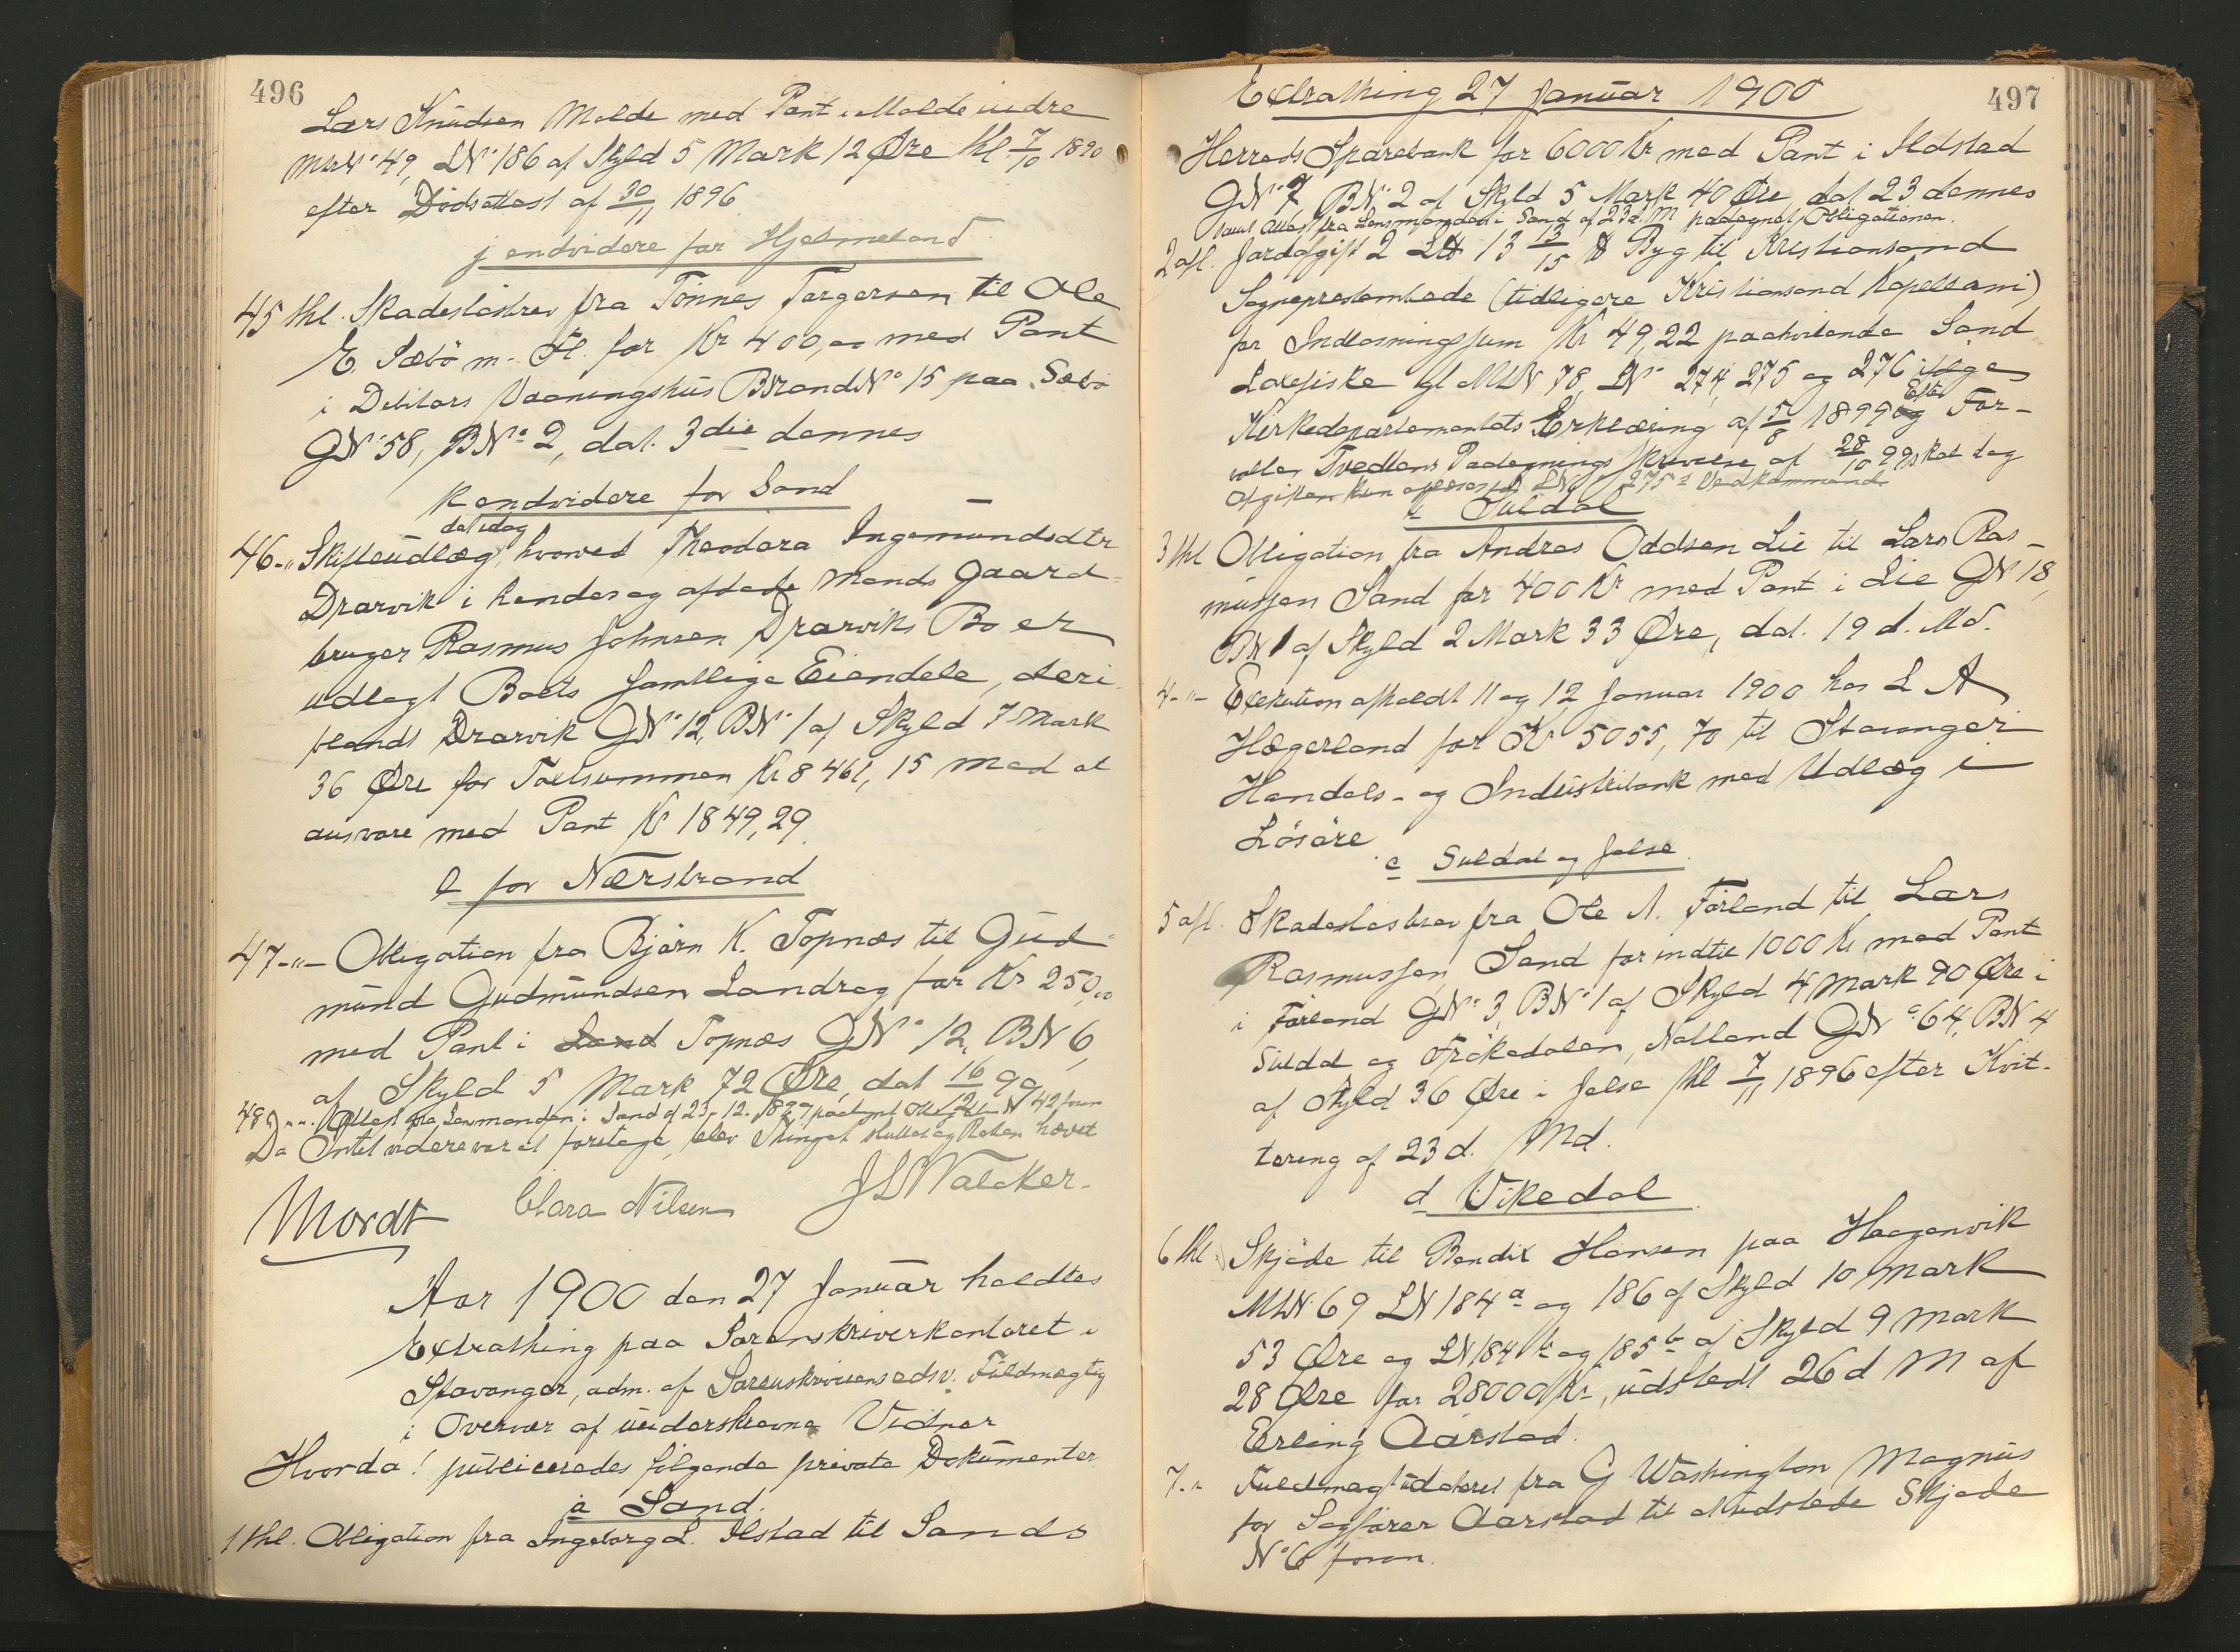 496
Lars Knudsen Molde med Pant i Molde indre
MtrN° 49, LN° 186 af Skyld 5 Mark 12 Øre thl. 7/10 1890
efter Dødsattest af 30/11 1896
j endvidere for Hjelmeland
45 thl. Skadesløsbrev fra Tönnes Torgersen til Ole
E. Sæbö m. Fl. for Kr 400,00 med Pant
i Debitors Vaaningshus BrandN° 15 paa Sæbö
GN° 58, BN° 2, dat. 3die dennes
k endvidere for Sand
dat idag
46 -"- Skifteudlæg, hvorved Theodora Ingemundsdtr
Drarvik i hendes og afdøde Mands Gaard-
bruger Rasmus Johnsen Drarviks Bo er
udlagt Boets samtlige Eiendele, deri-
blandt Drarvik GN° 12, BN° 1 af Skyld 7 Mark
36 Øre for Taxtsummen Kr 8461,15 mod at
ansvare med Pant Kr 1849,29
l for Nærstrand
47 -"- Obligation fra Bjørn K. Topnæs til Gud-
mund Gudmundsen Landrag for Kr 250,00
med Pant i Land Topnæs GN° 12, BN 6,
af Skyld 5 Mark 72 Øre, dat 16/12 99
48 -"- Attest fra Lensmanden i Sand af 23-12-1899 paategnet N 42 foran
Da Intet videre var at foretage, blev Thinget sluttet og Retten hævet
Mordt Clara Nilsen J L Walcker.
Aar 1900 den 27 Januar holdtes
Extrathing paa Sorenskriverkontoret i
Stavanger, adm. af Sorenskriverens edsv. Fuldmægtig
i Overvær af underskrevne Vidner
Hvorda! publiceredes følgende private Dokumenter
a Sand.
1 thl. Obligation fra Ingeborg L. Ilstad til Sands
Extrathing 27 Januar 1900
497
Herreds Sparebank for 6000 Kr med Pant i Ildstad
GN° 7, BN° 2 af Skyld 5 Mark 40 Øre, dat 23 dennes
samt Attest fra Lensmanden i Sand af 23 d. M paategnet Obligationen.
2 afl. Jordafgift 2 L℔ 13 13/15 ℔ Byg til Kristiansand
Sogneprestembede (tidligere Kristiansand Kapellani)
for Indløsningssum Kr 49,22 paahvilende Sand
Laxefiske gl MLN 78, LN° 274, 275 og 276 ifølge
Kirkedepartementets Erklæring af 5/8 1899 og Efter For-
valter Tvedtens Paategnings Skrivelse af 28/10 99 skal dog
Afgiften kun LN 275a Vedkommende
b Suldal
3 thl Obligation fra Andres Oddsen Lie til Lars Ras-
mussen Sand for 400 Kr med Pant i Lie GN 18,
BN 1 af Skyld 2 Mark 33 Øre, dat. 19 d. Md.
4 -"- Exekution afholdt 11 og 12 Januar 1900 hos L A
Hægerland for Kr 5055,70 til Stavanger
Handels- og Industribank med Udlæg i
Lösöre
c Suldal og Jelse
5 afl. Skadesløsbrev fra Ole A. Førland til Lars
Rasmussen, Sand for indtil 1000 Kr med Pant
i Førland GN° 3, BN° 1 af Skyld 4 Mark 90 Øre i
Suldal og Frökedalen, Nalland GN° 64, BN 4
af Skyld 36 Øre i Jelse thl 7/11 1896 efter Kvit-
tering af 23 d. Md.
d Vikedal
6 thl Skjøde til Bendix Hansen paa Haagenvik
MLN 69 LN 184 a og 186 af Skyld 10 Mark
53 Øre og LN 184 b og 185 b af Skyld 9 Mark
28 Øre for 28000 Kr, udstedt 26 d M af
Erling Aarstad.
7 -"- Fuldmagt udstedt fra G Washington Magnus
for Sagfører Aarstad til at udstede Skjøde
N° 6 foran.